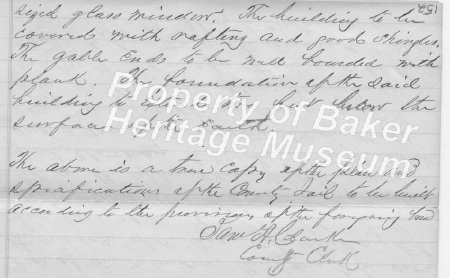 152
sized glass window. The building to be
covered with rafting and good shingles.
The gable Ends to be well boarded with
plank. The foundation of the said
building to feet below the
surface of the Earth.
The above is a true Copy of the plan and
specifications of the County Jail to be built
according to the provisions of the foregoing bond
Sam H.
County Clerk
Property of Baker
Heritage Museum